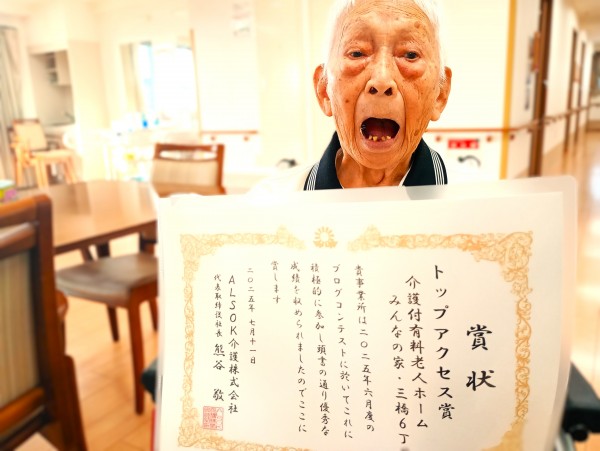 賞状
トップアクセス賞
介護付有料老人ホーム
みんなの家・三橋6丁
貴事業所は二〇二五年六月度の
ブログコンテストに於いてこれに
積極的に参加し頭書の通り優秀な
成績を収められましたのでここに
賞します
二〇二五年 七月十一日
ALSOK介護株式会社
代表取締役社長 熊谷 敬